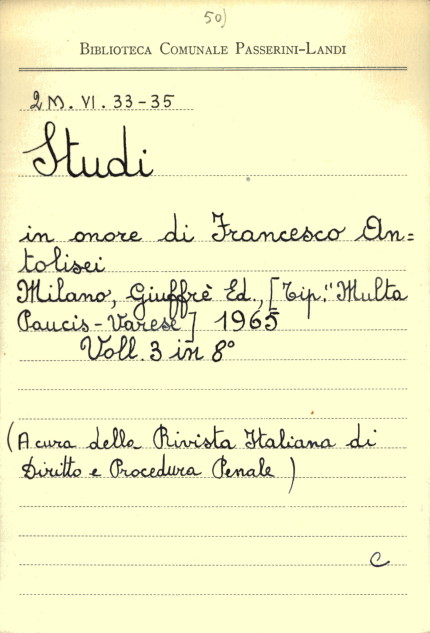 50)
BIBLIOTECA COMUNALE PASSERINI-LANDI
2M. VI. 33-35
Studi
in onore di Francesco An=
tolisei
Milano, Giuffrè Ed., [Tip." Multa
Paucis - Varese] 1965
Voll. 3 in 8°
(A cura della Rivista Italiana di
Diritto e Procedura Penale)
C